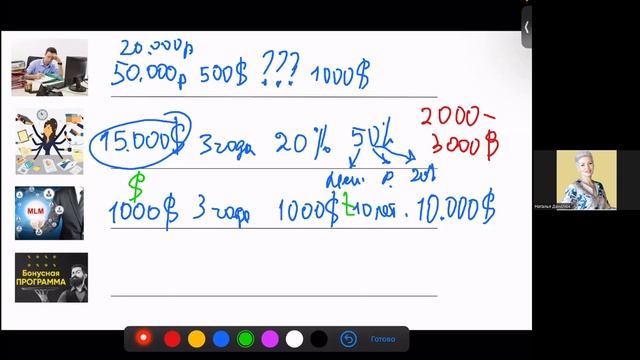 20.000р
50.000р 500$ ??? 1000$
15.000$ 3 года 20% 50%
2000-
3000$
$
1000$ 3 года 1000$ t 10 лет. 10.000$
MLM
Бонусная
ПРОГРАММА
Готово